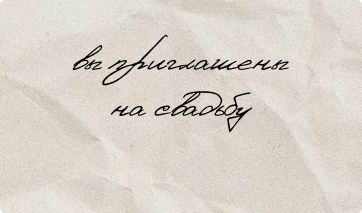 вы приглашены
на свадьбу